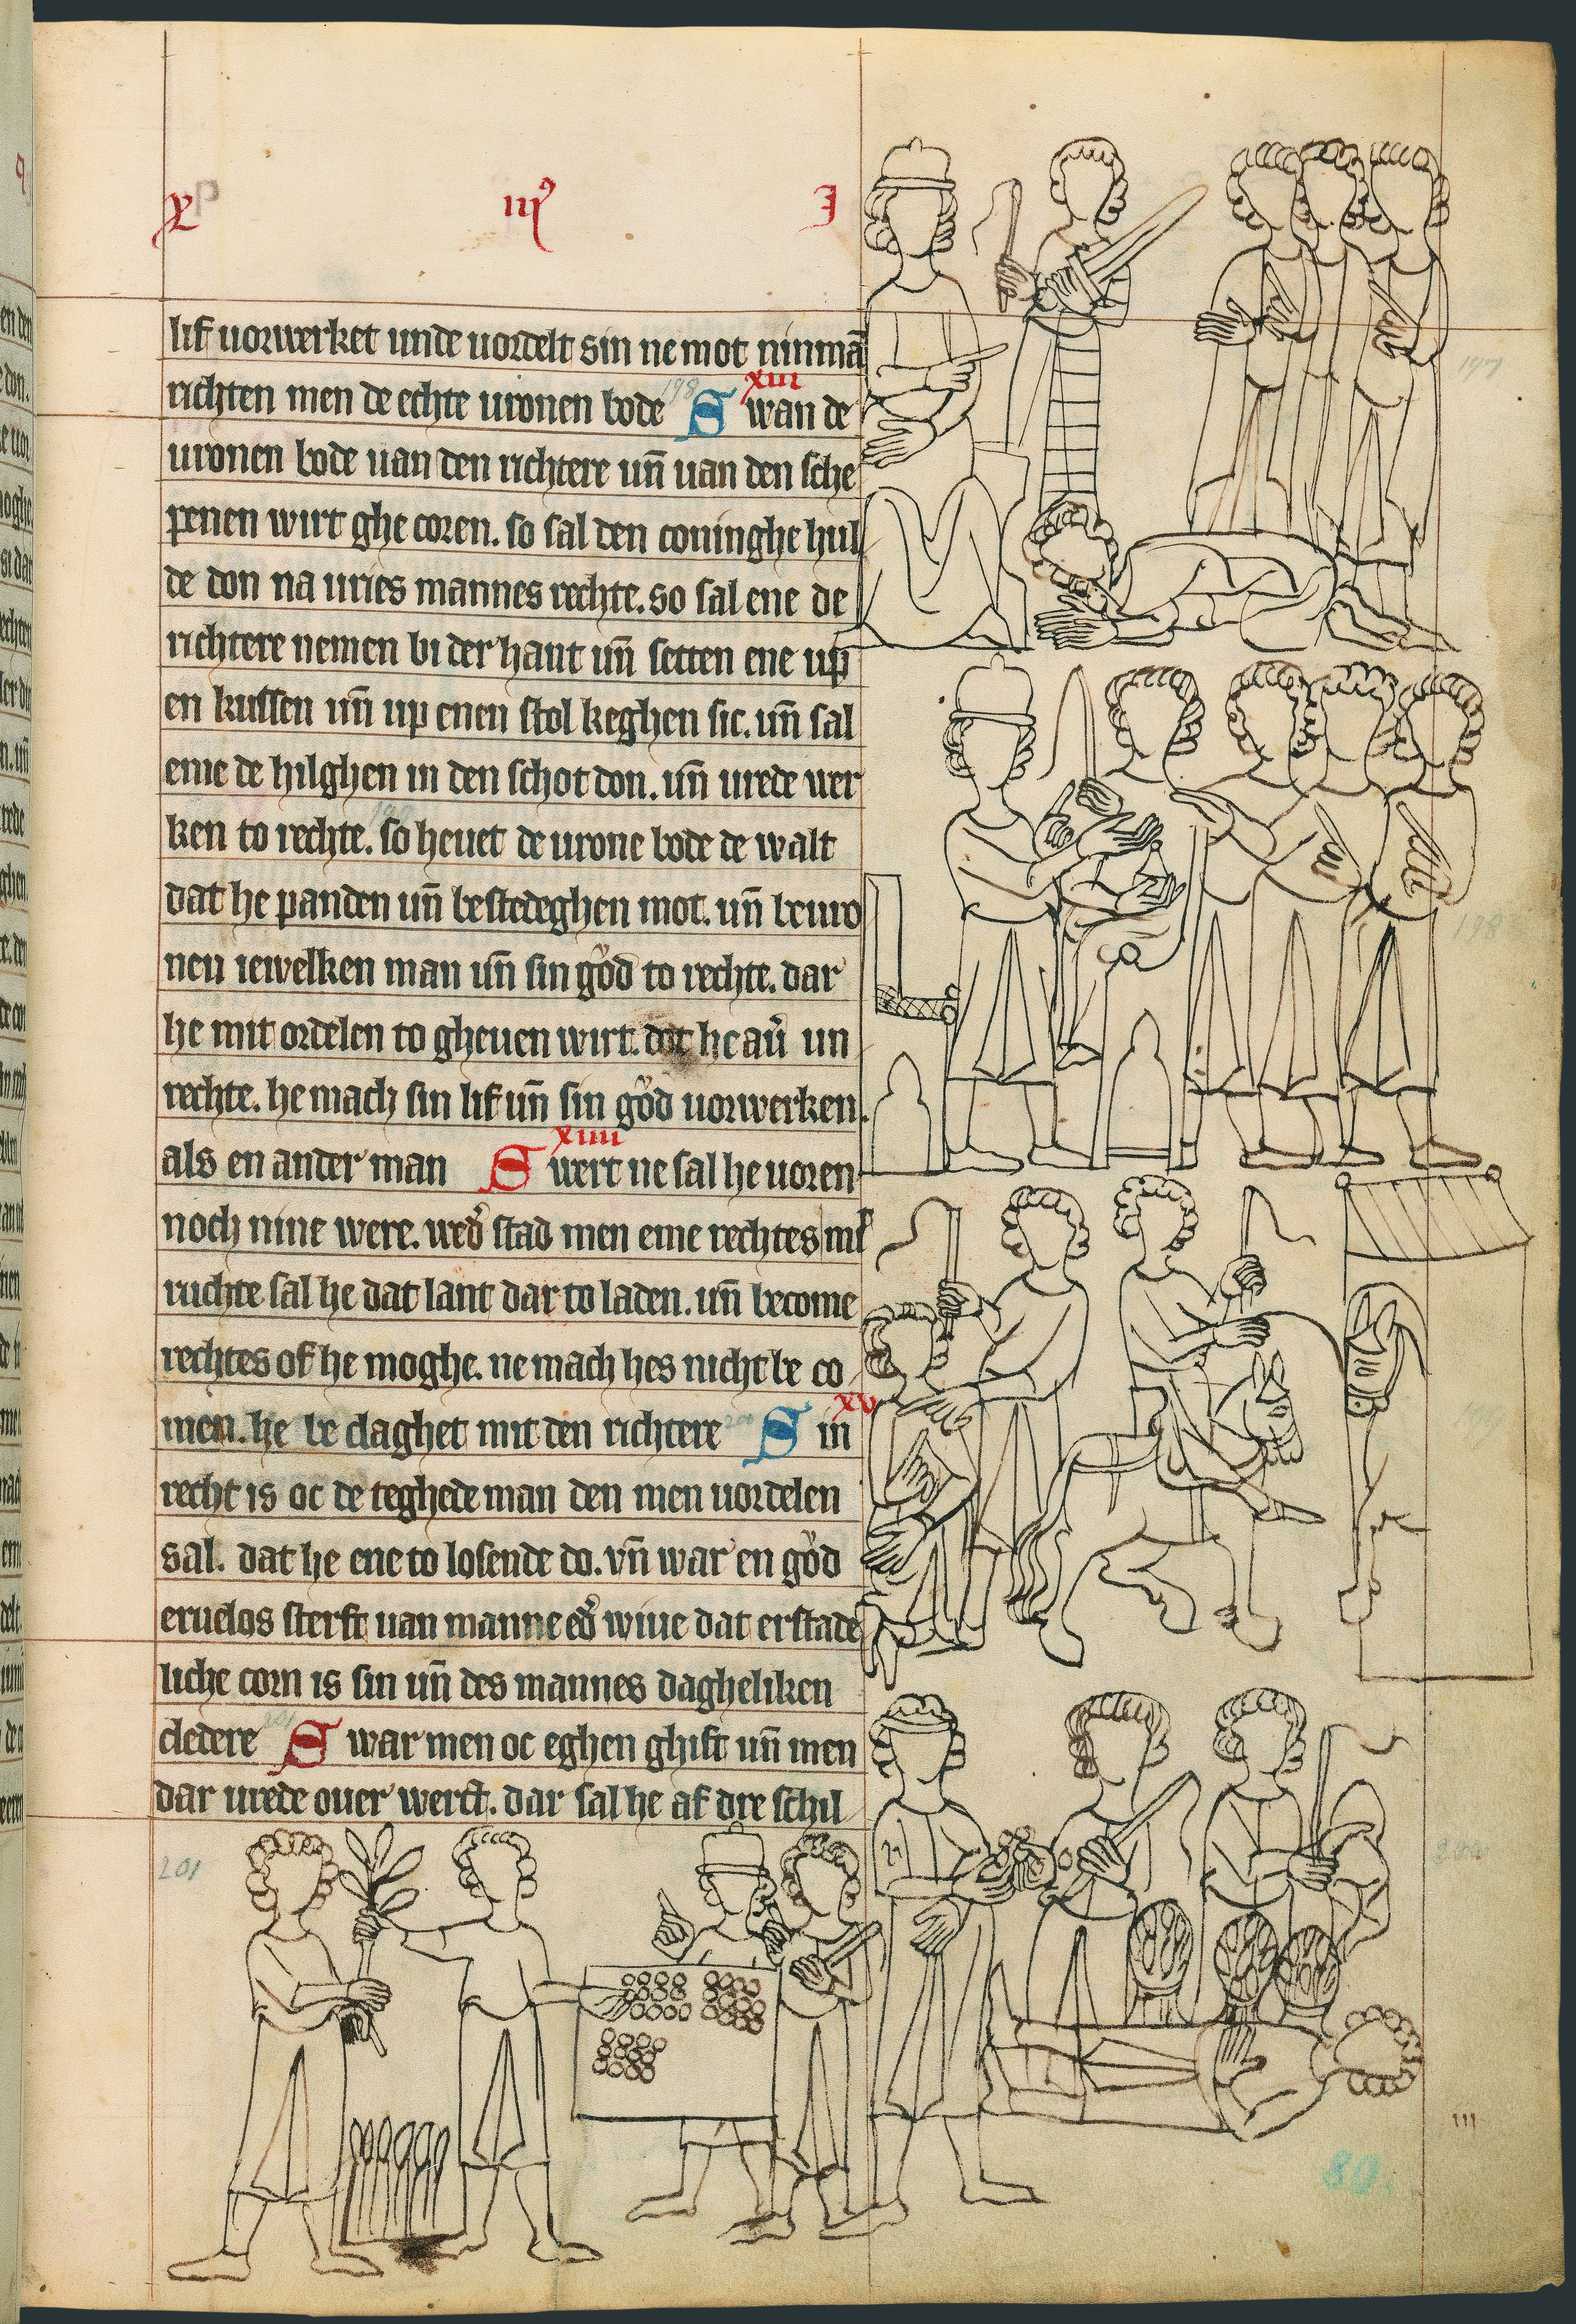 x iii⁹ I
lif uorwerket unde uordelt sin ne mot ninmā
richten men de echte uronen bode 198 xiii Swan de
uronen bode uan den richtere uñ uan den sche
penen wirt ghe coren. so sal den coninghe hul
de don na uries mannes rechte. so sal ene de
richtere nemen bi der hant uñ setten ene up
en kussen uñ up enen stol keghen sic. uñ sal
eme de hilghen in den schot don. uñ urede wer
ken to rechte. so heuet de urone bode de walt
dat he panden uñ bestedeghen mot. uñ bewro
nen iewelken man uñ sin gůd to rechte. dar
he mit ordelen to gheuen wirt. dot he au̓ un
rechte. he mach sin lif uñ sin gůd uorwerken.
als en ander man xiiii Swert ne sal he uoren
noch nine were. wed̓ stad men eme rechtes mit
ruchte sal he dat lant dar to laden. uñ become
rechtes of he moghe. ne mach hes nicht be co
men. he be claghet mit den richtere xv Sin
recht is oc de teghede man den men uordelen
sal. dat he ene to losende do. vñ war en gůd
eruelos sterft uan manne ed̓ wiue dat erstade
liche corn is sin uñ des mannes dagheliken
cledere 201 Swar men oc eghen ghift uñ men
dar urede ouer werct. dar sal he af dre schil
197
198
200
201
III
80.